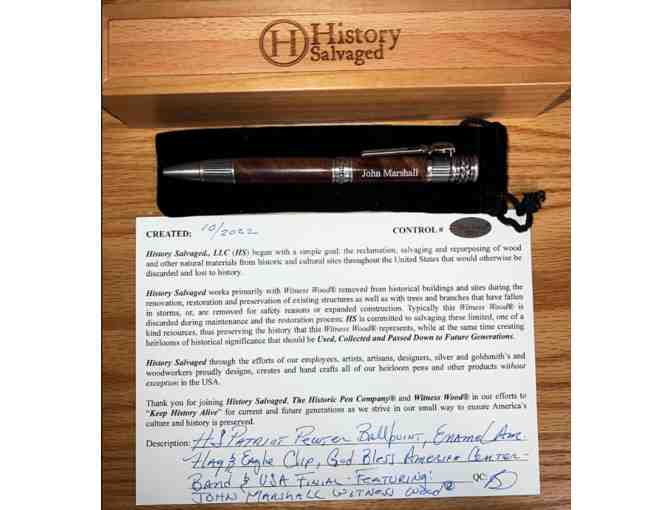 H History
Salvaged
John Marshall
CREATED: 10/2022 CONTROL #
History Salvaged., LLC (HS) began with a simple goal; the reclamation, salvaging and repurposing of wood
and other natural materials from historic and cultural sites throughout the United States that would otherwise be
discarded and lost to history.
History Salvaged works primarily with Witness Wood® removed from historical buildings and sites during the
renovation, restoration and preservation of existing structures as well as with trees and branches that have fallen
in storms, or, are removed for safety reasons or expanded construction. Typically this Witness Wood® is
discarded during maintenance and the restoration process. HS is committed to salvaging these limited, one of a
kind resources, thus preserving the history that this Witness Wood® represents, while at the same time creating
heirlooms of historical significance that should be Used, Collected and Passed Down to Future Generations.
History Salvaged through the efforts of our employees, artists, artisans, designers, silver and goldsmith's and
woodworkers proudly designs, creates and hand crafts all of our heirloom pens and other products without
exception in the USA.
Thank you for joining History Salvaged, The Historic Pen Company® and Witness Wood® in our efforts to
"Keep History Alive" for current and future generations as we strive in our small way to ensure America's
culture and history is preserved.
Description: HS PATRIOT PEWTER Ballpoint, ENAMEL AM.
Flag & Eagle Clip, God Bless AMERICA CENTER-
BAND & USA FINIAL - FEATURING: QC:
JOHN MARSHALL WITNESS WOOD®